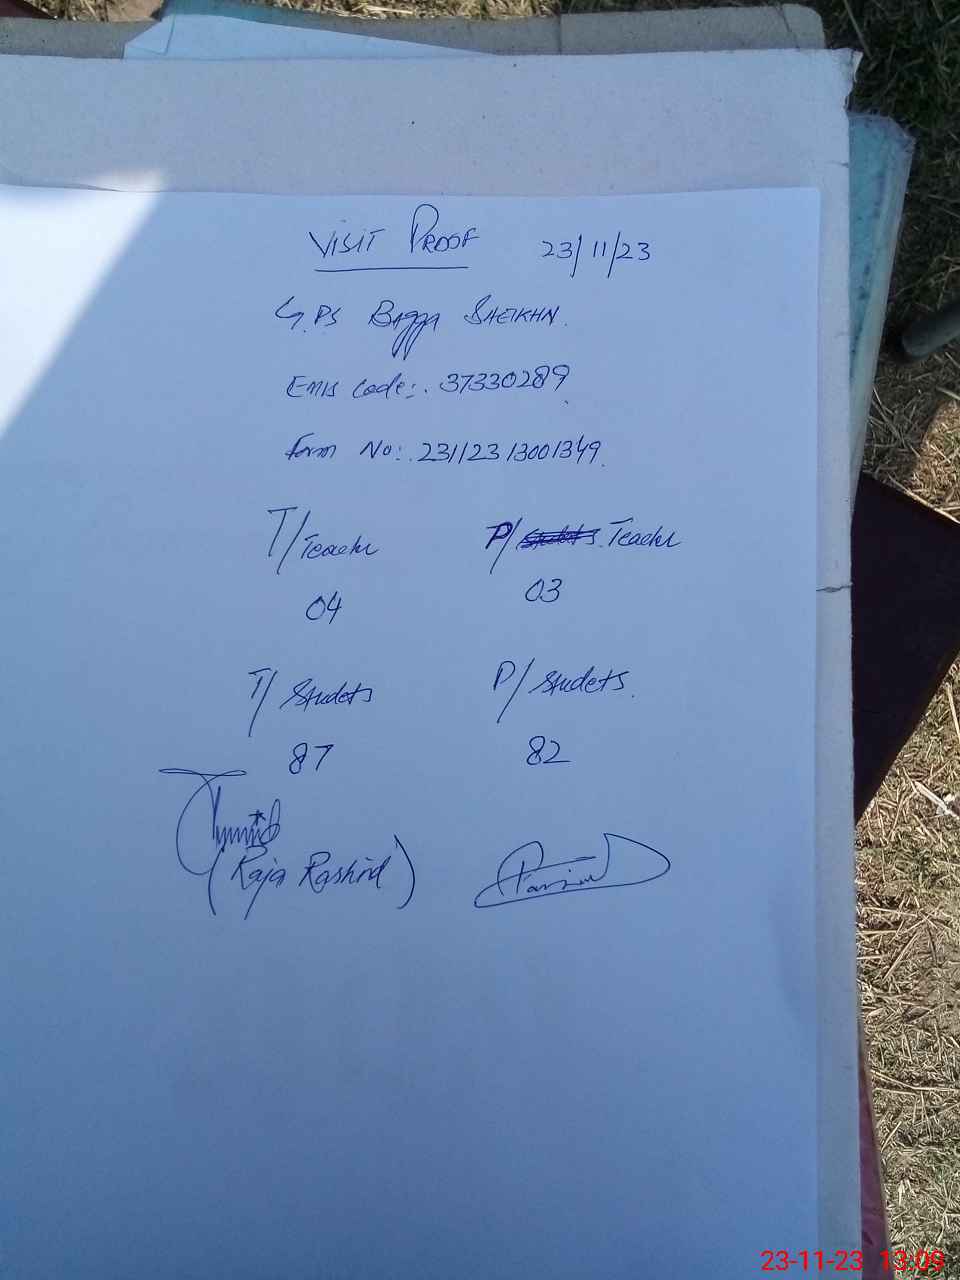 VISIT PROOF 23/11/23
G.PS BAgga SHEIKHN.
Emis code:. 37330289
Form No:. 23112313001349.
T/Teacher P/ Teacher
04 03
T/ Studets P/ Studets.
87 82
(Raja Rashid)
23-11-23 13:09